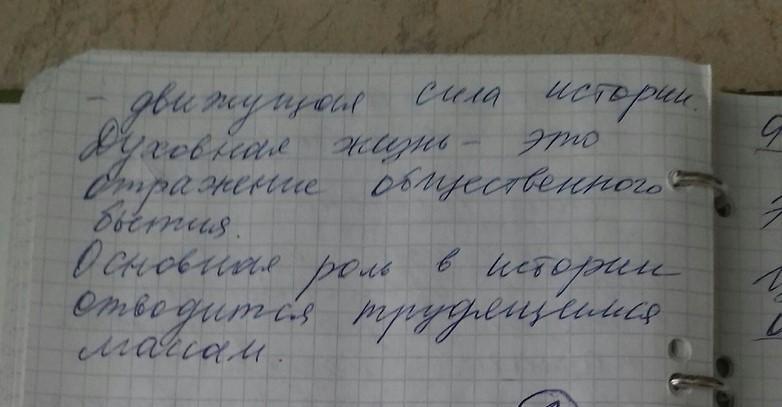 - движущая сила истории.
Духовная жизнь - это
отражение общественного
бытия.
Основная роль в истории
отводится трудящимся
массам.